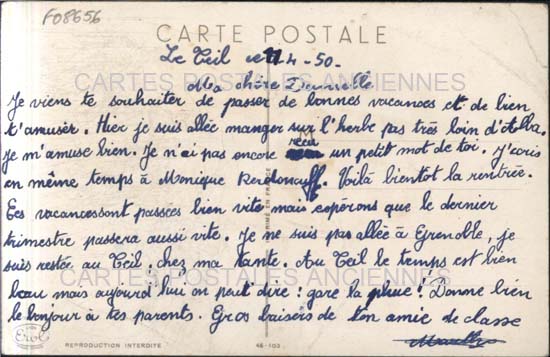 F08656
CARTE POSTALE
Le Teil le 11.4-50-
CARTES POSTALES ANCIENNES
Ma chère
Je viens te souhaiter de passer de bonnes vacances et de bien
t'amuser. Hier je suis allée manger sur l'herbe pas très loin d'
Je m'amuse bien. Je n'ai pas encore reçu un petit mot de toi. J'écris
en même temps à Monique Voilà bientôt la rentrée.
Ces vacances sont passées bien vite mais espérons que le dernier
trimestre passera aussi vite. Je ne suis pas allée à Grenoble, je
suis restée au Teil, chez ma tante. Au Teil le temps est bien
CARTES POSTALES ANCIENNES
beau mais aujourd'hui on peut dire : gare la pluie ! Donne bien
le bonjour à tes parents. Gros baisers de ton amie de classe
REPRODUCTION INTERDITE
46-103